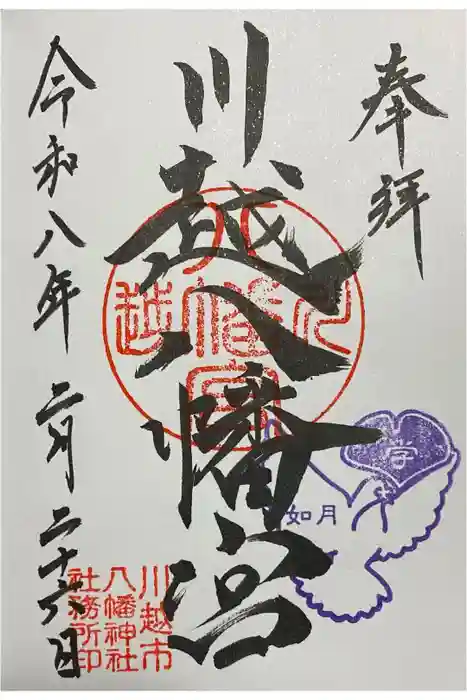 奉拝
川越八幡宮
令和八年二月二十六日
川越八幡宮
学
如月
川越市
八幡神社
社務所印